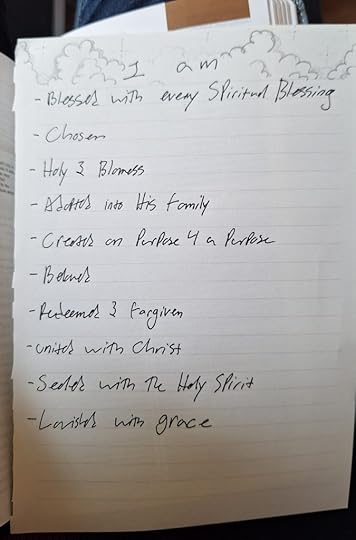 I am
- Blessed with every Spiritual Blessing
- Chosen
- Holy & Blamess
- Adopted into His family
- Created on Purpose 4 a Purpose
- Beloved
- Redeemed & Forgiven
- united with Christ
- Sealed with The Holy Spirit
- Lavished with grace